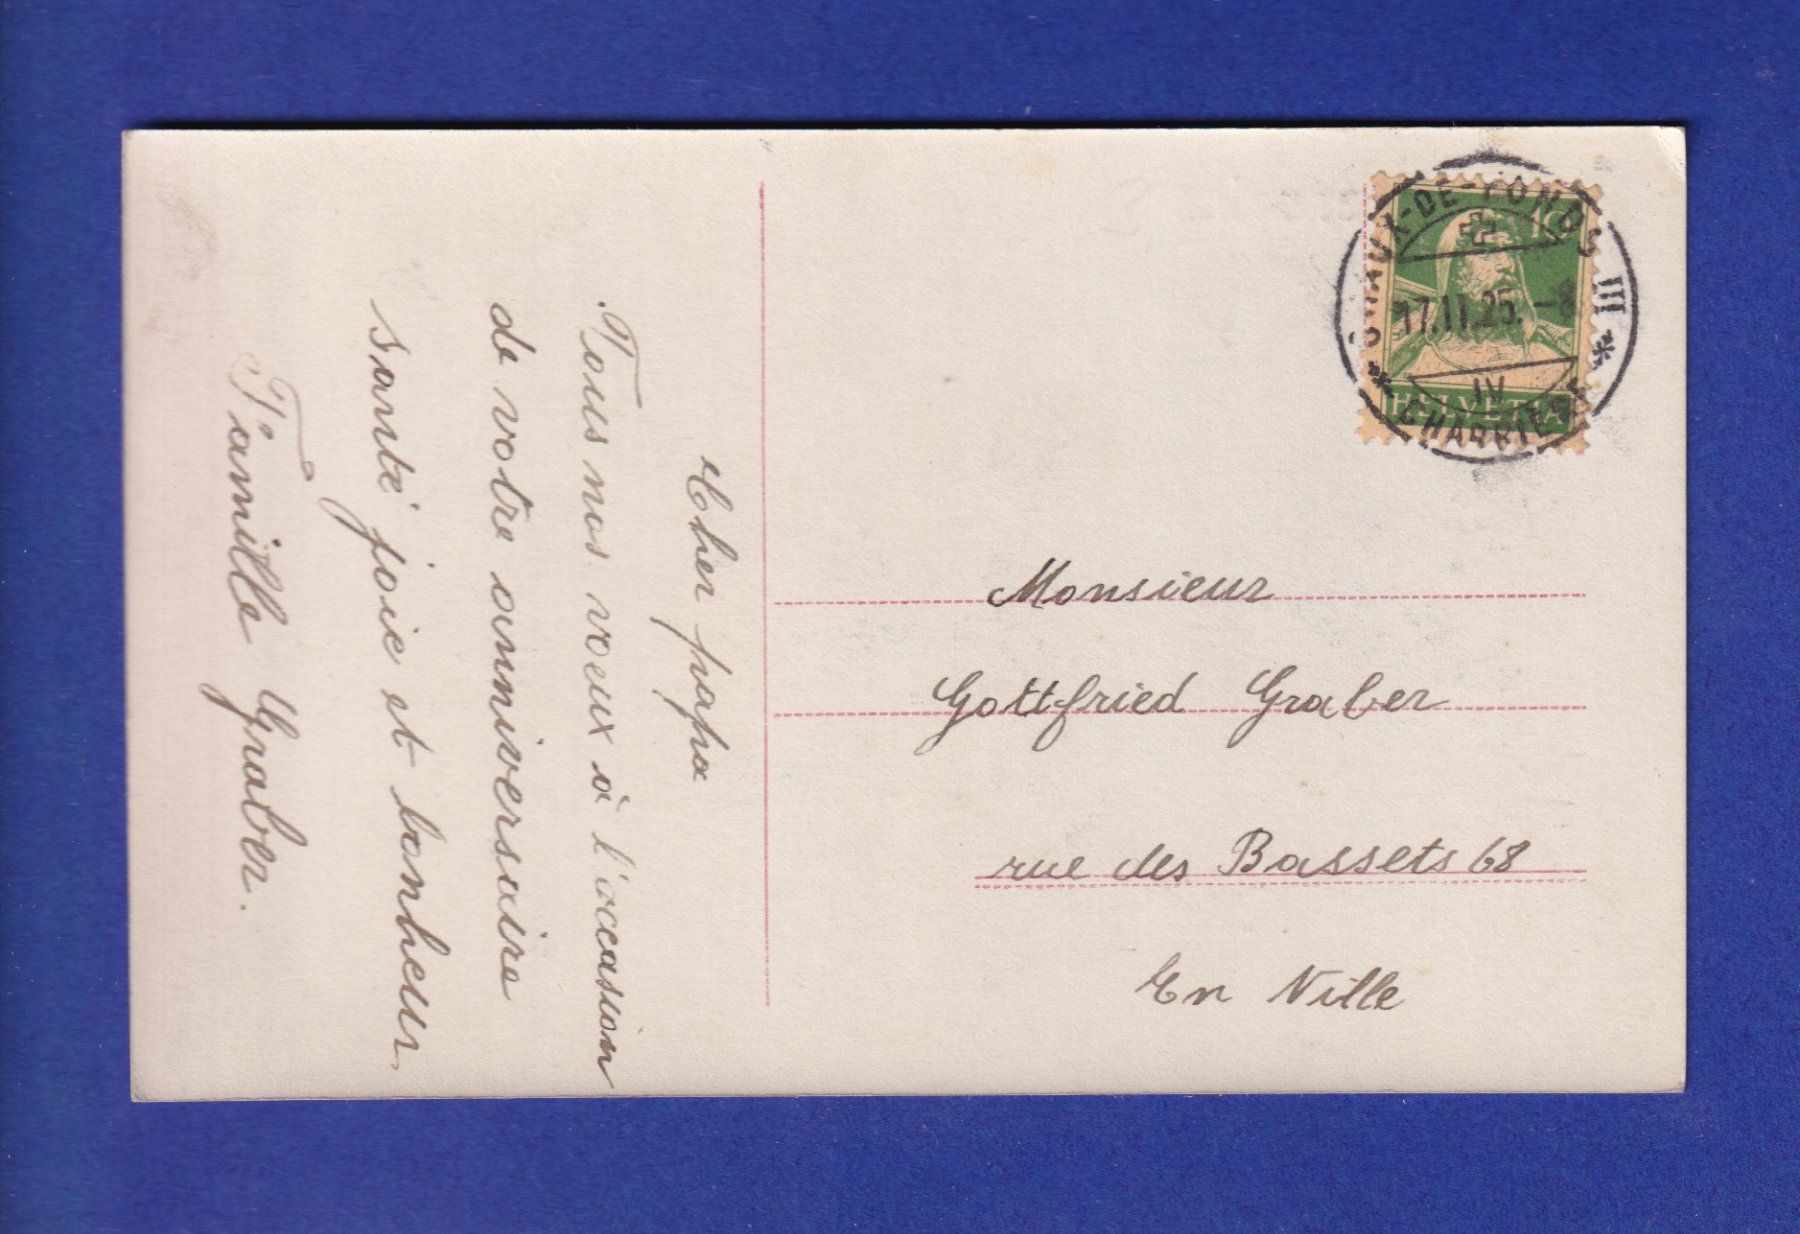 Cher papa
Tous nos voeux à l'occasion
de votre anniversaire
santé joie et bonheur
Famille Graber.
CHAUX-DE-FONDS III
10
17.II.25. -8
IV
HELVETIA
* CHARRIERE *
Monsieur
Gottfried Graber
rue des Bassets 68
En Ville